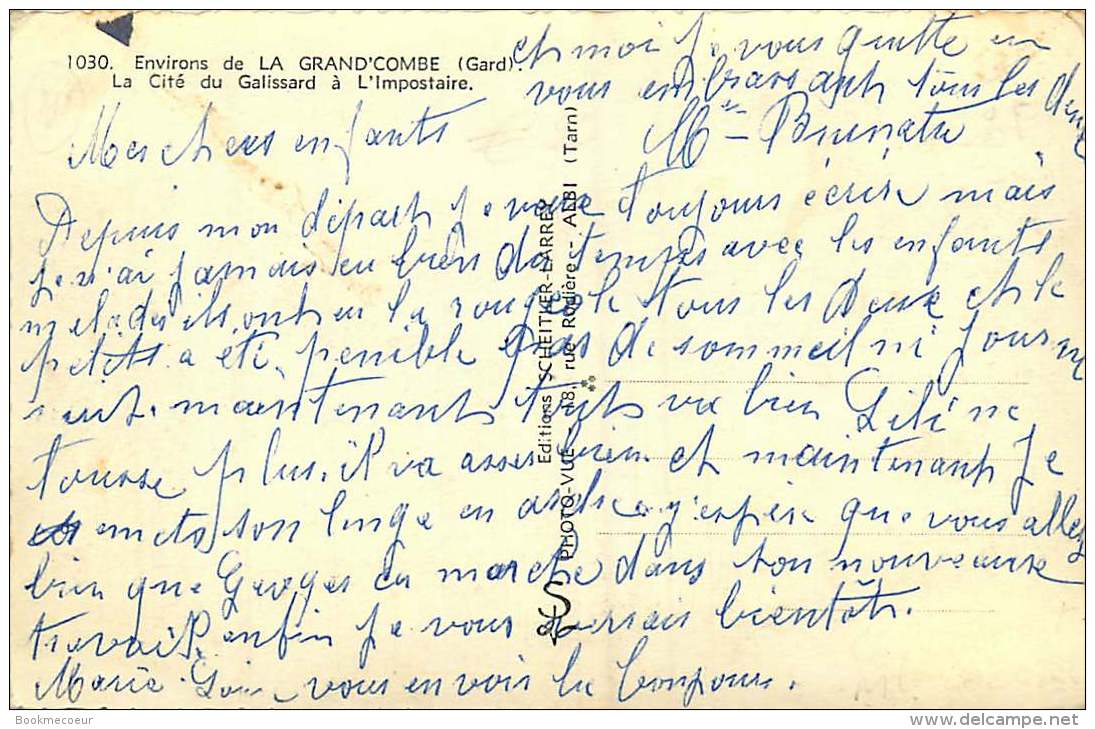 1030. Environs de LA GRAND'COMBE (Gard).
La Cité du Galissard à L'Impostaire.
Mes chers enfants
Depuis mon départ je veux toujours écrire mais
je n'ai jamais eu bien du temps avec les enfants
malades ils ont eu la rougeole tous les deux et le
petits a été penible pas de sommeil ni jour ni
nuit. maintenant tout va bien Lili ne
tousse plus. il va asser bien et maintenant je
mets son linge en ordre j'espère que vous allez
bien que Georges en marche dans son nouveaux
travail. enfin je vous verrais bientôt.
Marie vous envoir le bonjours.
et moi je vous quitte en
vous embrassant tous les deux
Editions SCHEITLER-LARREY
PHOTO-VUE - 18, rue Rodière - ALBI (Tarn)
Bookmecoeur
www.delcampe.net